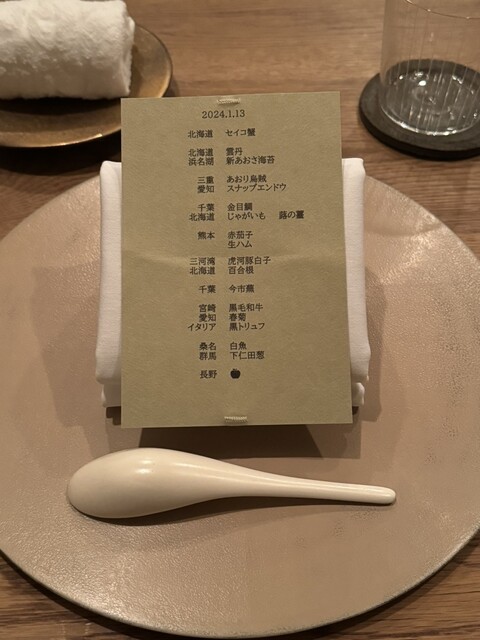 2024.1.13
北海道 セイコ蟹
北海道 雲丹
浜名湖 新あおさ海苔
三重 あおり烏賊
愛知 スナップエンドウ
千葉 金目鯛
北海道 じゃがいも 蕗の薹
熊本 赤茄子
生ハム
三河湾 虎河豚白子
北海道 百合根
千葉 今市蕪
宮崎 黒毛和牛
愛知 春菊
イタリア 黒トリュフ
桑名 白魚
群馬 下仁田葱
長野